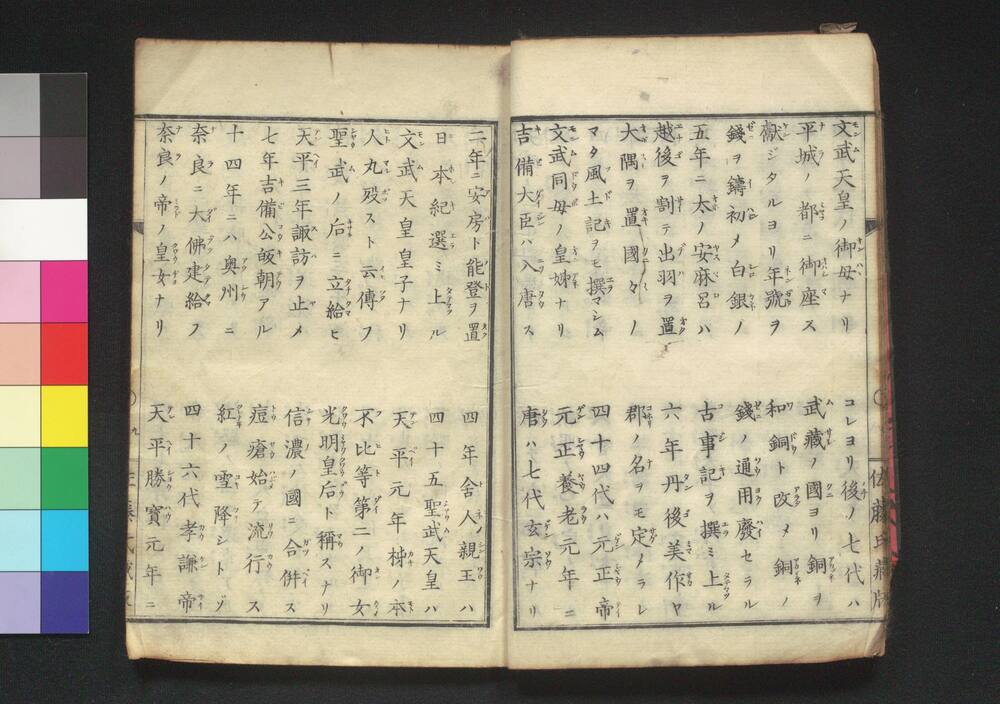 文武天皇ノ御母ナリ
コレヨリ後ノ七代ハ
平城ノ都ニ御座ス
武藏ノ國ヨリ銅ヲ
獻ジタルヨリ年號ヲ
和銅ト改メ銅ノ
錢ヲ鑄初メ白銀ノ
錢ノ通用廢セラル
五年ニ太ノ安麻呂ハ
古事記ヲ撰ミ上ル
越後ヲ割テ出羽ヲ置
六年丹後美作ヤ
大隅ヲ置國々ノ
郡ノ名ヲモ定メラレ
マタ風土記ヲモ撰マシム
四十四代ハ元正帝
文武同母ノ皇姉ナリ
元正養老元年ニ
吉備大臣ハ入唐ス
唐ハ七代玄宗ナリ
二年ニ安房ト能登ヲ置
四年舍人ノ親王ハ
日本紀選ミ上ル
四十五聖武天皇ハ
文武天皇皇子ナリ
天平元年柹ノ本
人丸歿スト云傳フ
不比等第二ノ御女
聖武ノ后ニ立給ヒ
光明皇后ト稱スナリ
天平三年諏訪ヲ止メ
信濃ノ國ニ合併ス
七年吉備公皈朝アル
痘瘡始テ流行ス
十四年ニハ奥州ニ
紅ノ雪降シトゾ
奈良ニ大佛建給フ
四十六代孝謙帝
奈良ノ帝ノ皇女ナリ
天平勝寶元年ニ
佐藤氏藏版